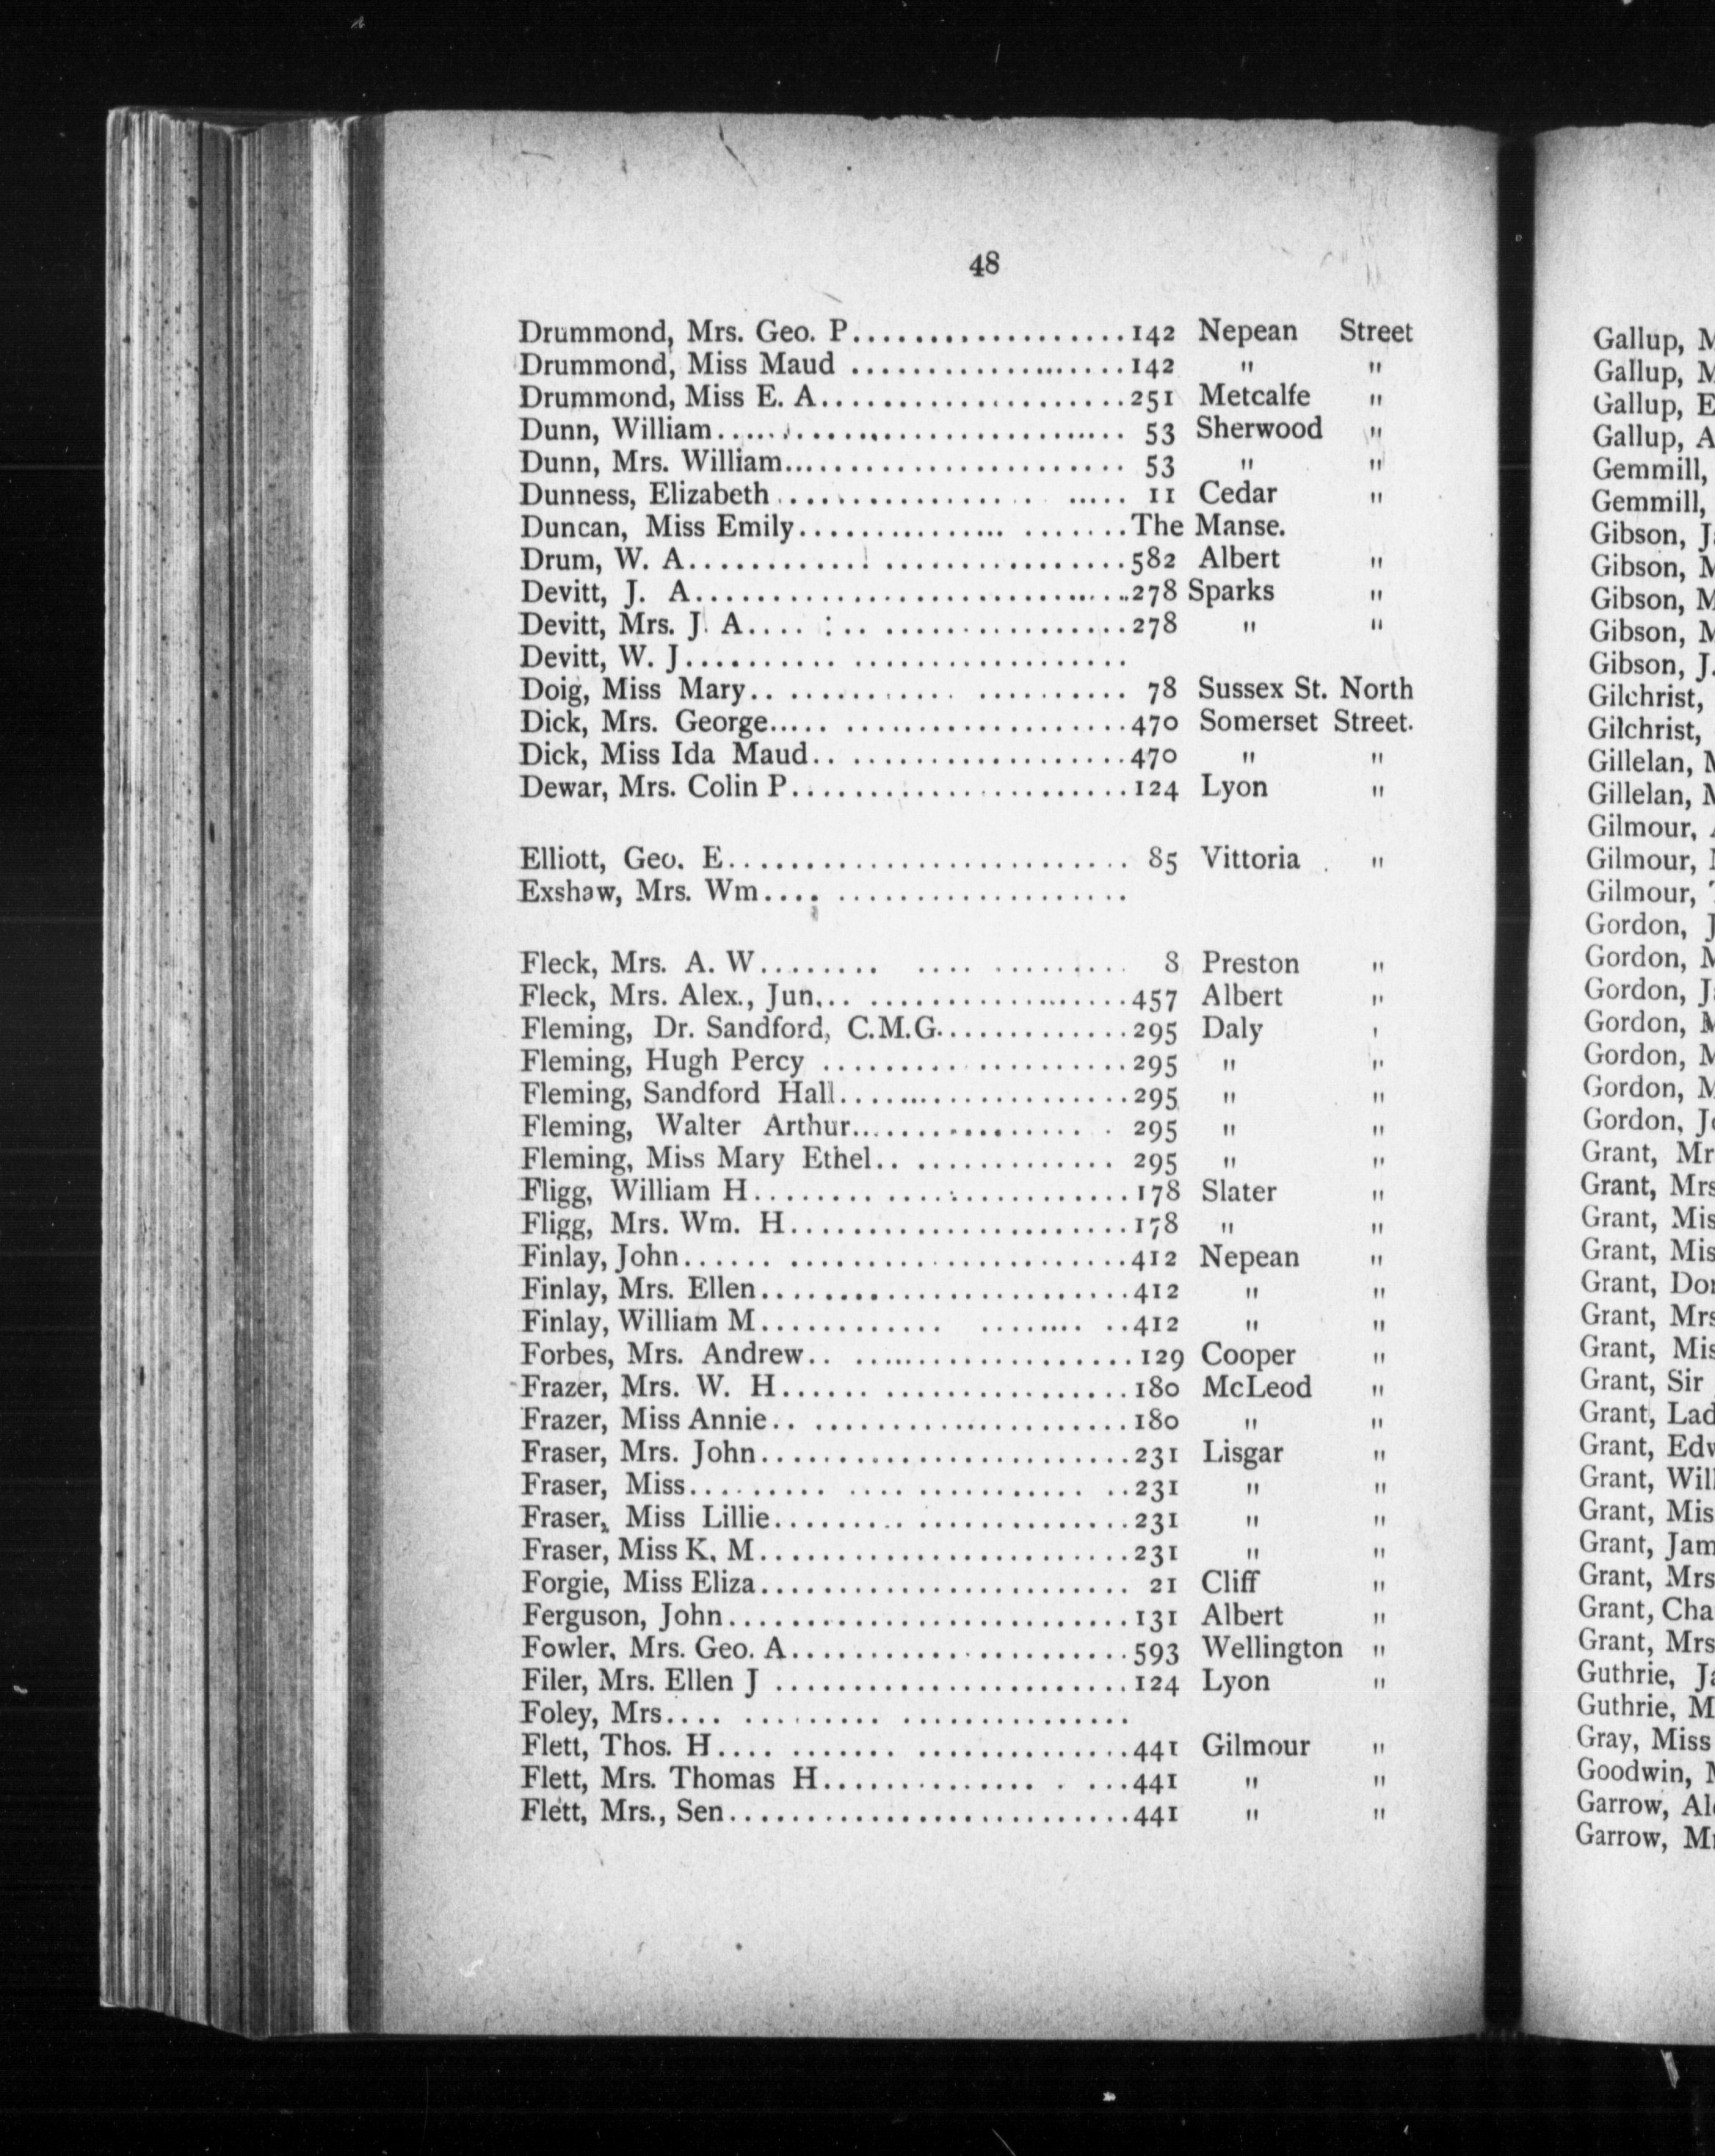 48
Drummond, Mrs. Geo. P...................142 Nepean Street
Drummond, Miss Maud ...................142 " "
Drummond, Miss E. A.....................251 Metcalfe "
Dunn, William............................ 53 Sherwood "
Dunn, Mrs. William....................... 53 " "
Dunness, Elizabeth ................. ..... 11 Cedar "
Duncan, Miss Emily................ .......The Manse.
Drum, W. A............. .................582 Albert "
Devitt, J. A..............................278 Sparks "
Devitt, Mrs. J. A.... : .. .................278 " "
Devitt, W. J........... ...................
Doig, Miss Mary.. ............ .......... 78 Sussex St. North
Dick, Mrs. George..... ...................470 Somerset Street.
Dick, Miss Ida Maud.. ...................470 " "
Dewar, Mrs. Colin P.......................124 Lyon "
Elliott, Geo. E............................ 85 Vittoria "
Exshaw, Mrs. Wm.... ....................
Fleck, Mrs. A. W........ .... ........... 8 Preston "
Fleck, Mrs. Alex., Jun... ..................457 Albert "
Fleming, Dr. Sandford, C.M.G.............295 Daly '
Fleming, Hugh Percy ....................295 " "
Fleming, Sandford Hall....................295 " "
Fleming, Walter Arthur................ . 295 " "
Fleming, Miss Mary Ethel.. ............. 295 " "
Fligg, William H........ .................178 Slater "
Fligg, Mrs. Wm. H.......................178 " "
Finlay, John...... .......................412 Nepean "
Finlay, Mrs. Ellen.........................412 " "
Finlay, William M............ ....... ..412 " "
Forbes, Mrs. Andrew.. ...................129 Cooper "
Frazer, Mrs. W. H...... .................180 McLeod "
Frazer, Miss Annie.. .....................180 " "
Fraser, Mrs. John.........................231 Lisgar "
Fraser, Miss......... .... ........... ..231 " "
Fraser, Miss Lillie......... ...............231 " "
Fraser, Miss K. M.........................231 " "
Forgie, Miss Eliza......................... 21 Cliff "
Ferguson, John............................131 Albert "
Fowler, Mrs. Geo. A.......................593 Wellington "
Filer, Mrs. Ellen J ........................124 Lyon "
Foley, Mrs.... ......... ................
Flett, Thos. H.... ....... ...............441 Gilmour "
Flett, Mrs. Thomas H.............. . ...441 " "
Flett, Mrs., Sen...........................441 " "
Gallup, M
Gallup, M
Gallup, E
Gallup, A
Gemmill,
Gemmill,
Gibson, J
Gibson, M
Gibson, M
Gibson, M
Gibson, J.
Gilchrist,
Gilchrist,
Gillelan, M
Gillelan, M
Gilmour,
Gilmour,
Gilmour,
Gordon, J
Gordon, M
Gordon, J
Gordon, M
Gordon, M
Gordon, M
Gordon, Jo
Grant, Mr
Grant, Mrs
Grant, Mis
Grant, Mis
Grant, Don
Grant, Mrs
Grant, Mis
Grant, Sir
Grant, Lad
Grant, Edw
Grant, Will
Grant, Mis
Grant, Jam
Grant, Mrs
Grant, Cha
Grant, Mrs
Guthrie, Ja
Guthrie, M
Gray, Miss
Goodwin, M
Garrow, Al
Garrow, M